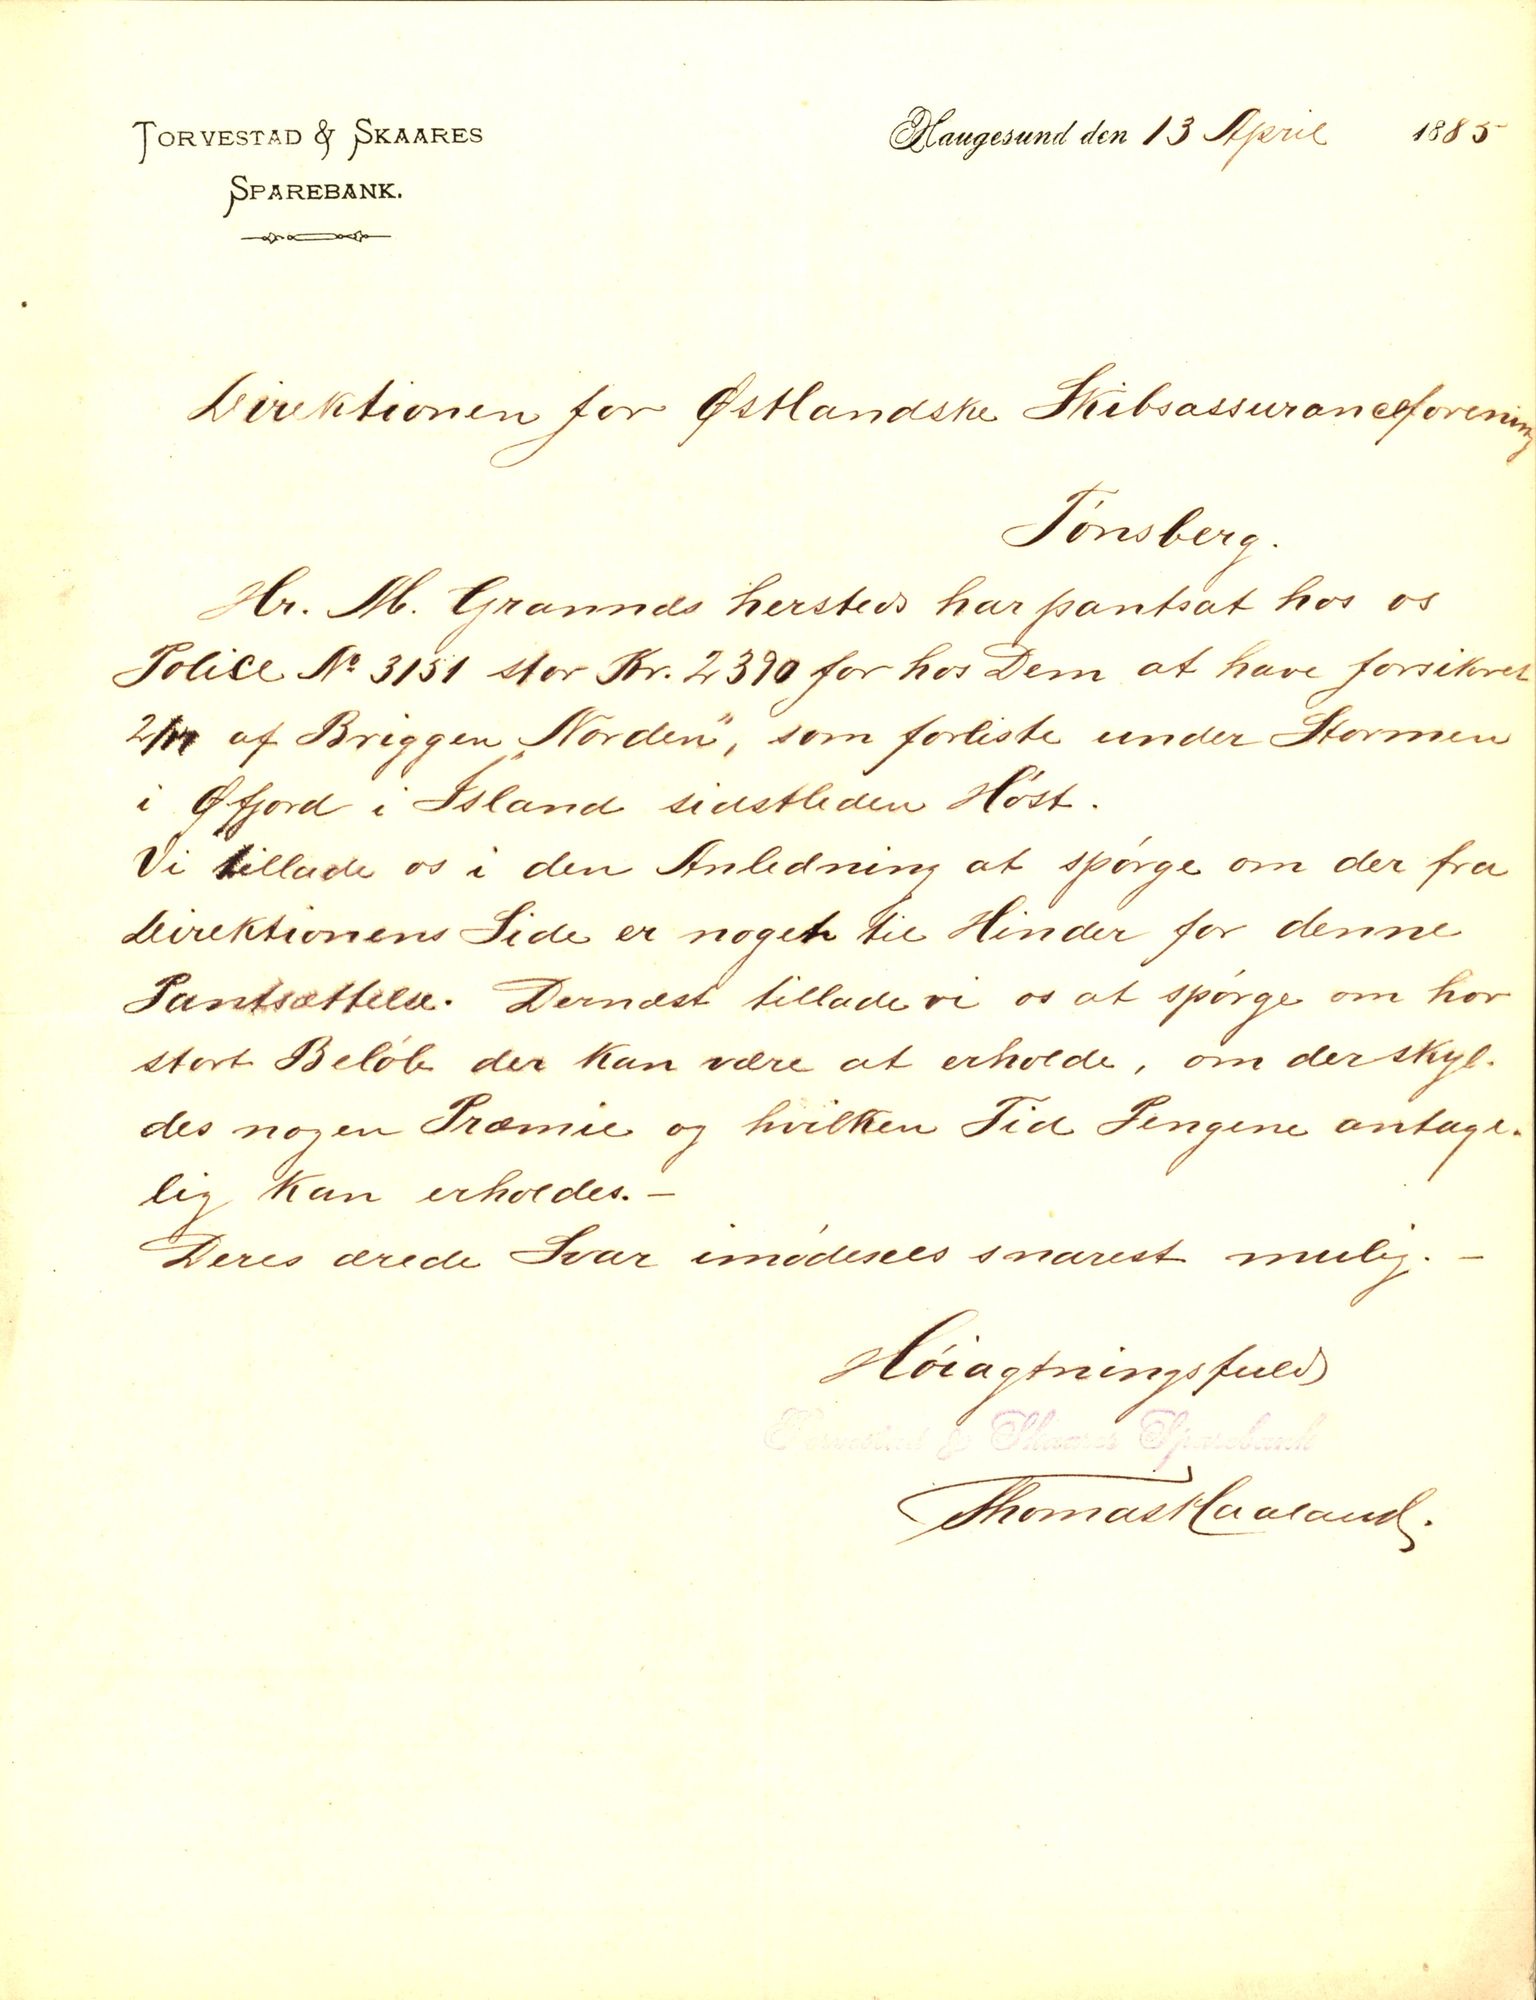 TORVESTAD & SKAARES
SPAREBANK.
Haugesund den 13 April 1885
Direktionen for Østlandske Skibsassuranceforening
Tönsberg.
Hr. M. Grannds hersteds har pantsat hos os
Police No 3151 stor Kr. 2390 for hos Dem at have forsikret
af Briggen „Norden", som forliste under Stormen
i Øfjord i Island sidstleden Höst.
Vi tillade os i den Anledning at spörge om der fra
Direktionens Side er noget til Hinder for denne
Pantsættelse. Dernæst tillade vi os at spörge om hor
stort Belöb der kan være at erholde, om der skyl-
des nogen Præmie og hvilken Tid Pengene antage-
lig kan erholdes. —
Deres ærede Svar imödesees snarest mulig. —
Höiagtningsfuld
Torvestad & Skaares Sparebank
Thomas Haaland.